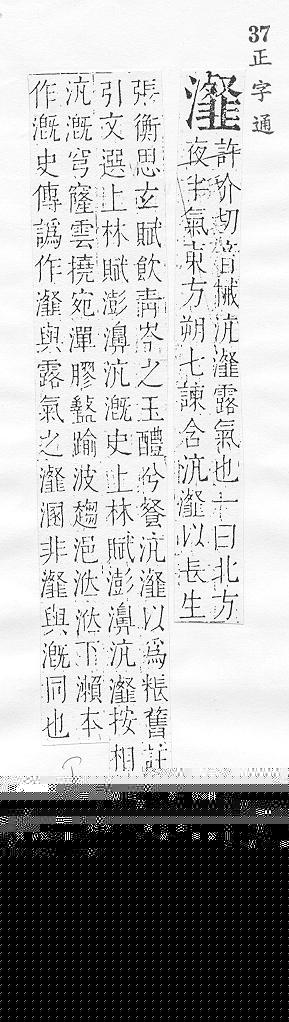 37 正字通
瀣
許介切音械沆瀣露氣也一曰北方
夜半氣東方朔七諫含沆瀣以長生
張衡思玄賦飲青岑之玉醴兮餐沆瀣以為粻舊註
引文選上林賦澎濞沆溉史上林賦澎濞沆瀣按相
沆溉穹窿雲撓宛潬膠盭踰波趨浥沊沊下瀨本
作溉史傳譌作瀣與露氣之瀣溷非瀣與溉同也